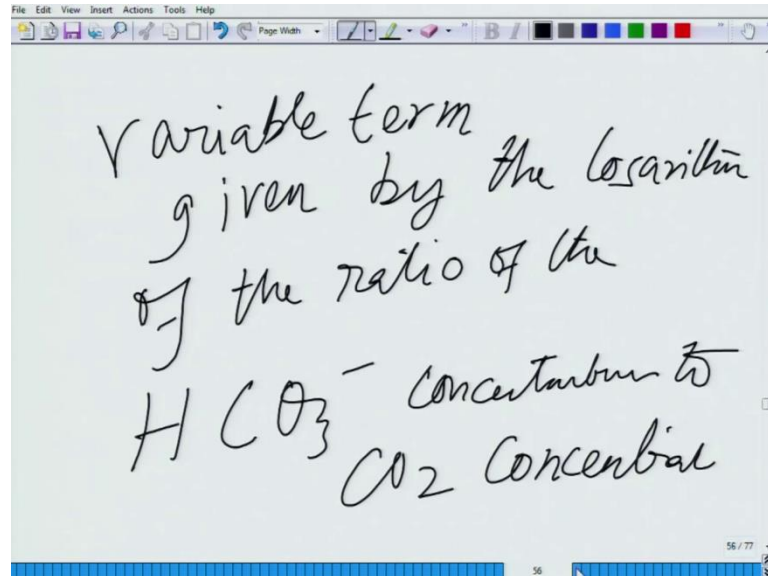 File Edit View Insert Actions Tools Help
Page Width B I
variable term
given by the logarithm
of the ratio of the
HCO3⁻ concentration to
CO2 concentration
56 / 77
56